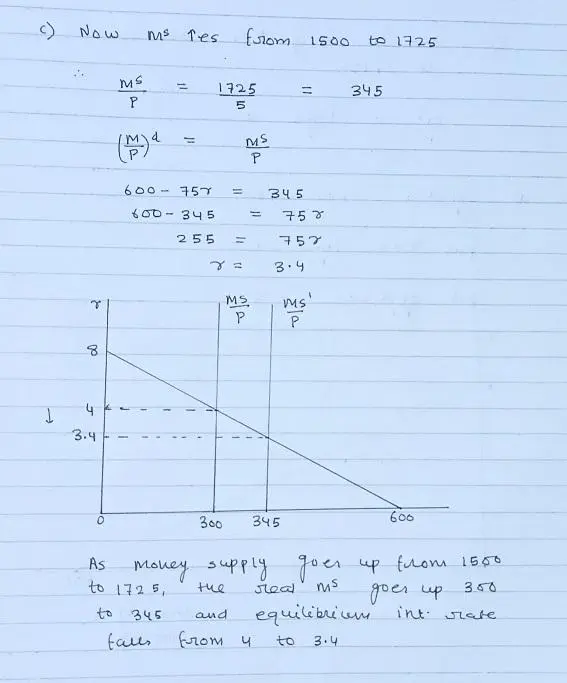 c) Now Ms ↑es from 1500 to 1725
∴ Ms/P = 1725/5 = 345
(M/P)^d = Ms/P
600 - 75r = 345
600 - 345 = 75r
255 = 75r
r = 3.4
r Ms/P Ms'/P
8
↓ 4
3.4
0 300 345 600
As money supply goes up from 1500
to 1725, the real Ms goes up 300
to 345 and equilibrium int. rate
falls from 4 to 3.4